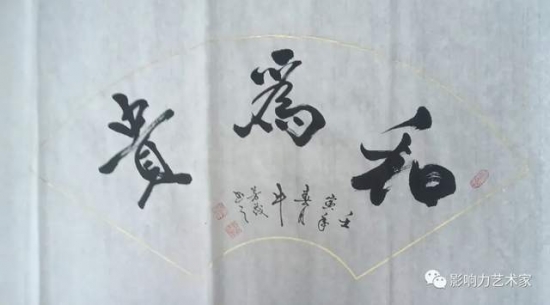 和為貴
壬
寅年
春月
牛
影响力艺术家